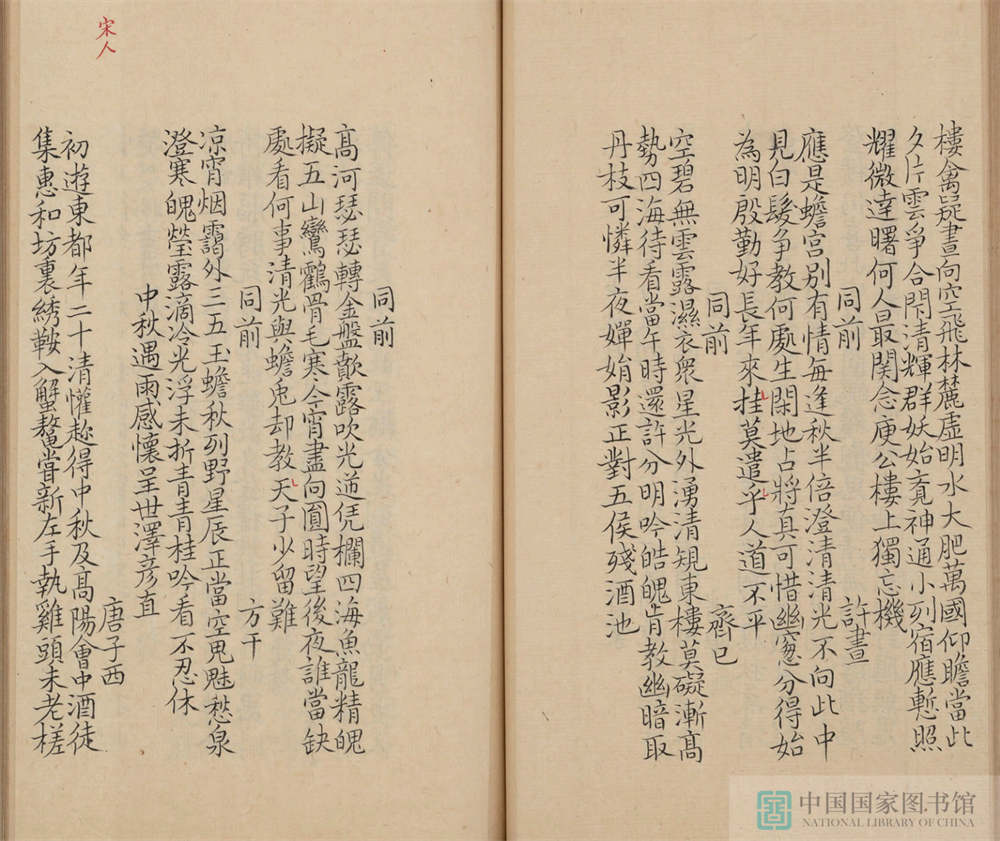 棲禽疑晝向空飛林麓虛明水大肥萬國仰瞻當此
夕片雲爭合閇清輝群妖始竟神通小列宿應慙照
耀微達曙何人最関念庾公樓上獨忘機
同前 許晝
應是蟾宫別有情每逢秋半倍澄清清光不向此中
見白髮争教何處生閑地占將真可惜幽窻分得始
為明殷勤好長年來挂莫遣乎人道不平
同前 齊已
空碧無雲露濕衣衆星光外湧清規東樓莫礙漸髙
勢四海待看當午時還許分明吟皓魄肯教幽暗取
丹枝可憐半夜嬋娟影正對五侯殘酒池
同前
髙河瑟瑟轉金盤歕露吹光逈凭欄四海魚龍精魄
擬五山鸞鸖骨毛寒今宵盡向圓時望後夜誰當缺
處看何事清光與蟾兎却教天子少留難
同前 方干
凉宵烟靄外三五玉蟾秋列野星辰正當空鬼魅愁泉
澄寒魄瑩露滴冷光浮未折青青桂吟看不忍休
中秋遇雨感懷呈世澤彦直
唐子西
初遊東都年二十清懽趂得中秋及髙陽會中酒徒
集惠和坊裏綉鞍入蟹螯甞新左手執雞頭未老槎
宋人
中国国家图书馆
NATIONAL LIBRARY OF CHINA